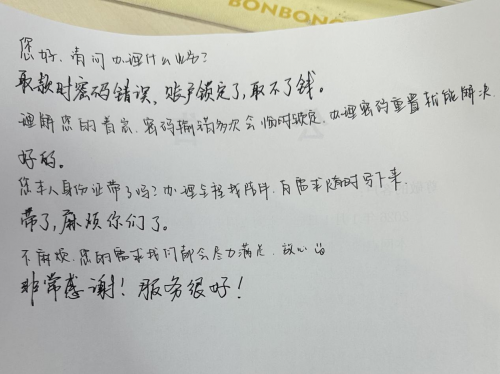 BONBON
您好,请问办理什么业务?
取款时密码错误,账户锁定了,取不了钱。
理解您的着急,密码输错多次会临时锁定,办理密码重置就能解决
好的。
您本人身份证带了吗?办理全程我陪伴,有需求随时写下来.
带了,麻烦你们了。
不麻烦,您的需求我们都会尽力满足,放心
非常感谢!服务很好!